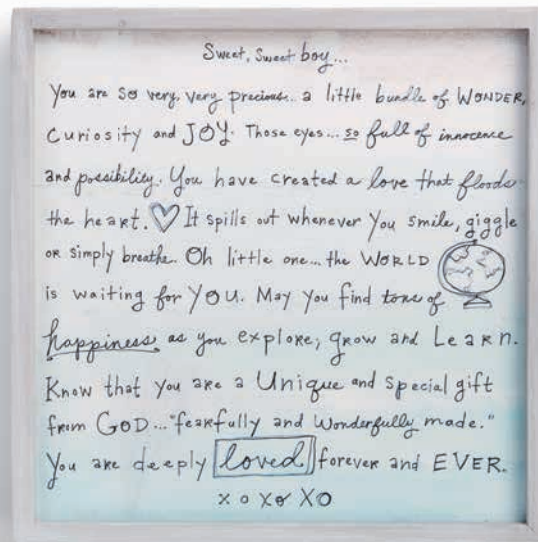 Sweet, Sweet boy...
You are so very, very precious... a little bundle of WONDER,
Curiosity and JOY. Those eyes... so full of innocence
and possibility. You have created a love that floods
the heart. ♡ It spills out whenever you smile, giggle
or simply breathe. Oh little one... the WORLD
is waiting for YOU. May you find tons of
happiness as you explore, grow and Learn.
Know that you are a Unique and special gift
from GOD... "fearfully and wonderfully made."
You are deeply loved forever and EVER.
x o x o X O